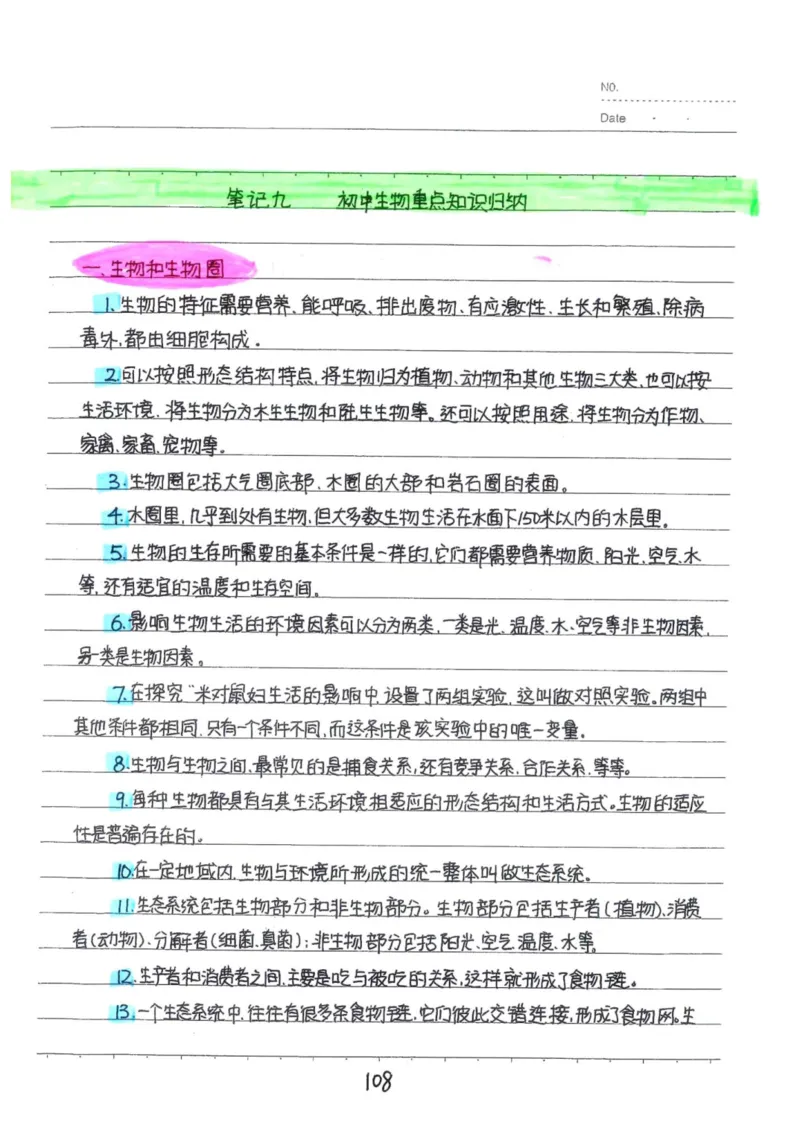 NO.
Date
笔记九 初中生物重点知识归纳
一、生物和生物圈
1、生物的特征需要营养、能呼吸、排出废物、有应激性、生长和繁殖、除病
毒外,都由细胞构成。
2、可以按照形态结构特点,将生物归为植物、动物和其他生物三大类,也可以按
生活环境,将生物分为水生生物和陆生生物等。还可以按照用途,将生物分为作物、
家禽、家畜、宠物等。
3、生物圈包括大气圈底部、水圈的大部和岩石圈的表面。
4、水圈里,几乎到处有生物,但大多数生物生活在水面下150米以内的水层里。
5、生物的生存所需要的基本条件是一样的,它们都需要营养物质、阳光、空气、水
等,还有适宜的温度和生存空间。
6、影响生物生活的环境因素可以分为两类,一类是光、温度、水、空气等非生物因素,
另一类是生物因素。
7、在探究“米对鼠妇生活的影响中,设置了两组实验,这叫做对照实验。两组中
其他条件都相同,只有一个条件不同,而这条件是该实验中的唯一变量。
8、生物与生物之间,最常见的是捕食关系,还有竞争关系、合作关系、等等。
9、每种生物都具有与其生活环境相适应的形态结构和生活方式。生物的适应
性是普遍存在的。
10、在一定地域内,生物与环境所形成的统一整体叫做生态系统。
11、生态系统包括生物部分和非生物部分。生物部分包括生产者(植物)、消费
者(动物)、分解者(细菌、真菌);非生物部分包括阳光、空气、温度、水等。
12、生产者和消费者之间,主要是吃与被吃的关系,这样就形成了食物链。
13、一个生态系统中,往往有很多条食物链,它们彼此交错连接,形成了食物网。生
108